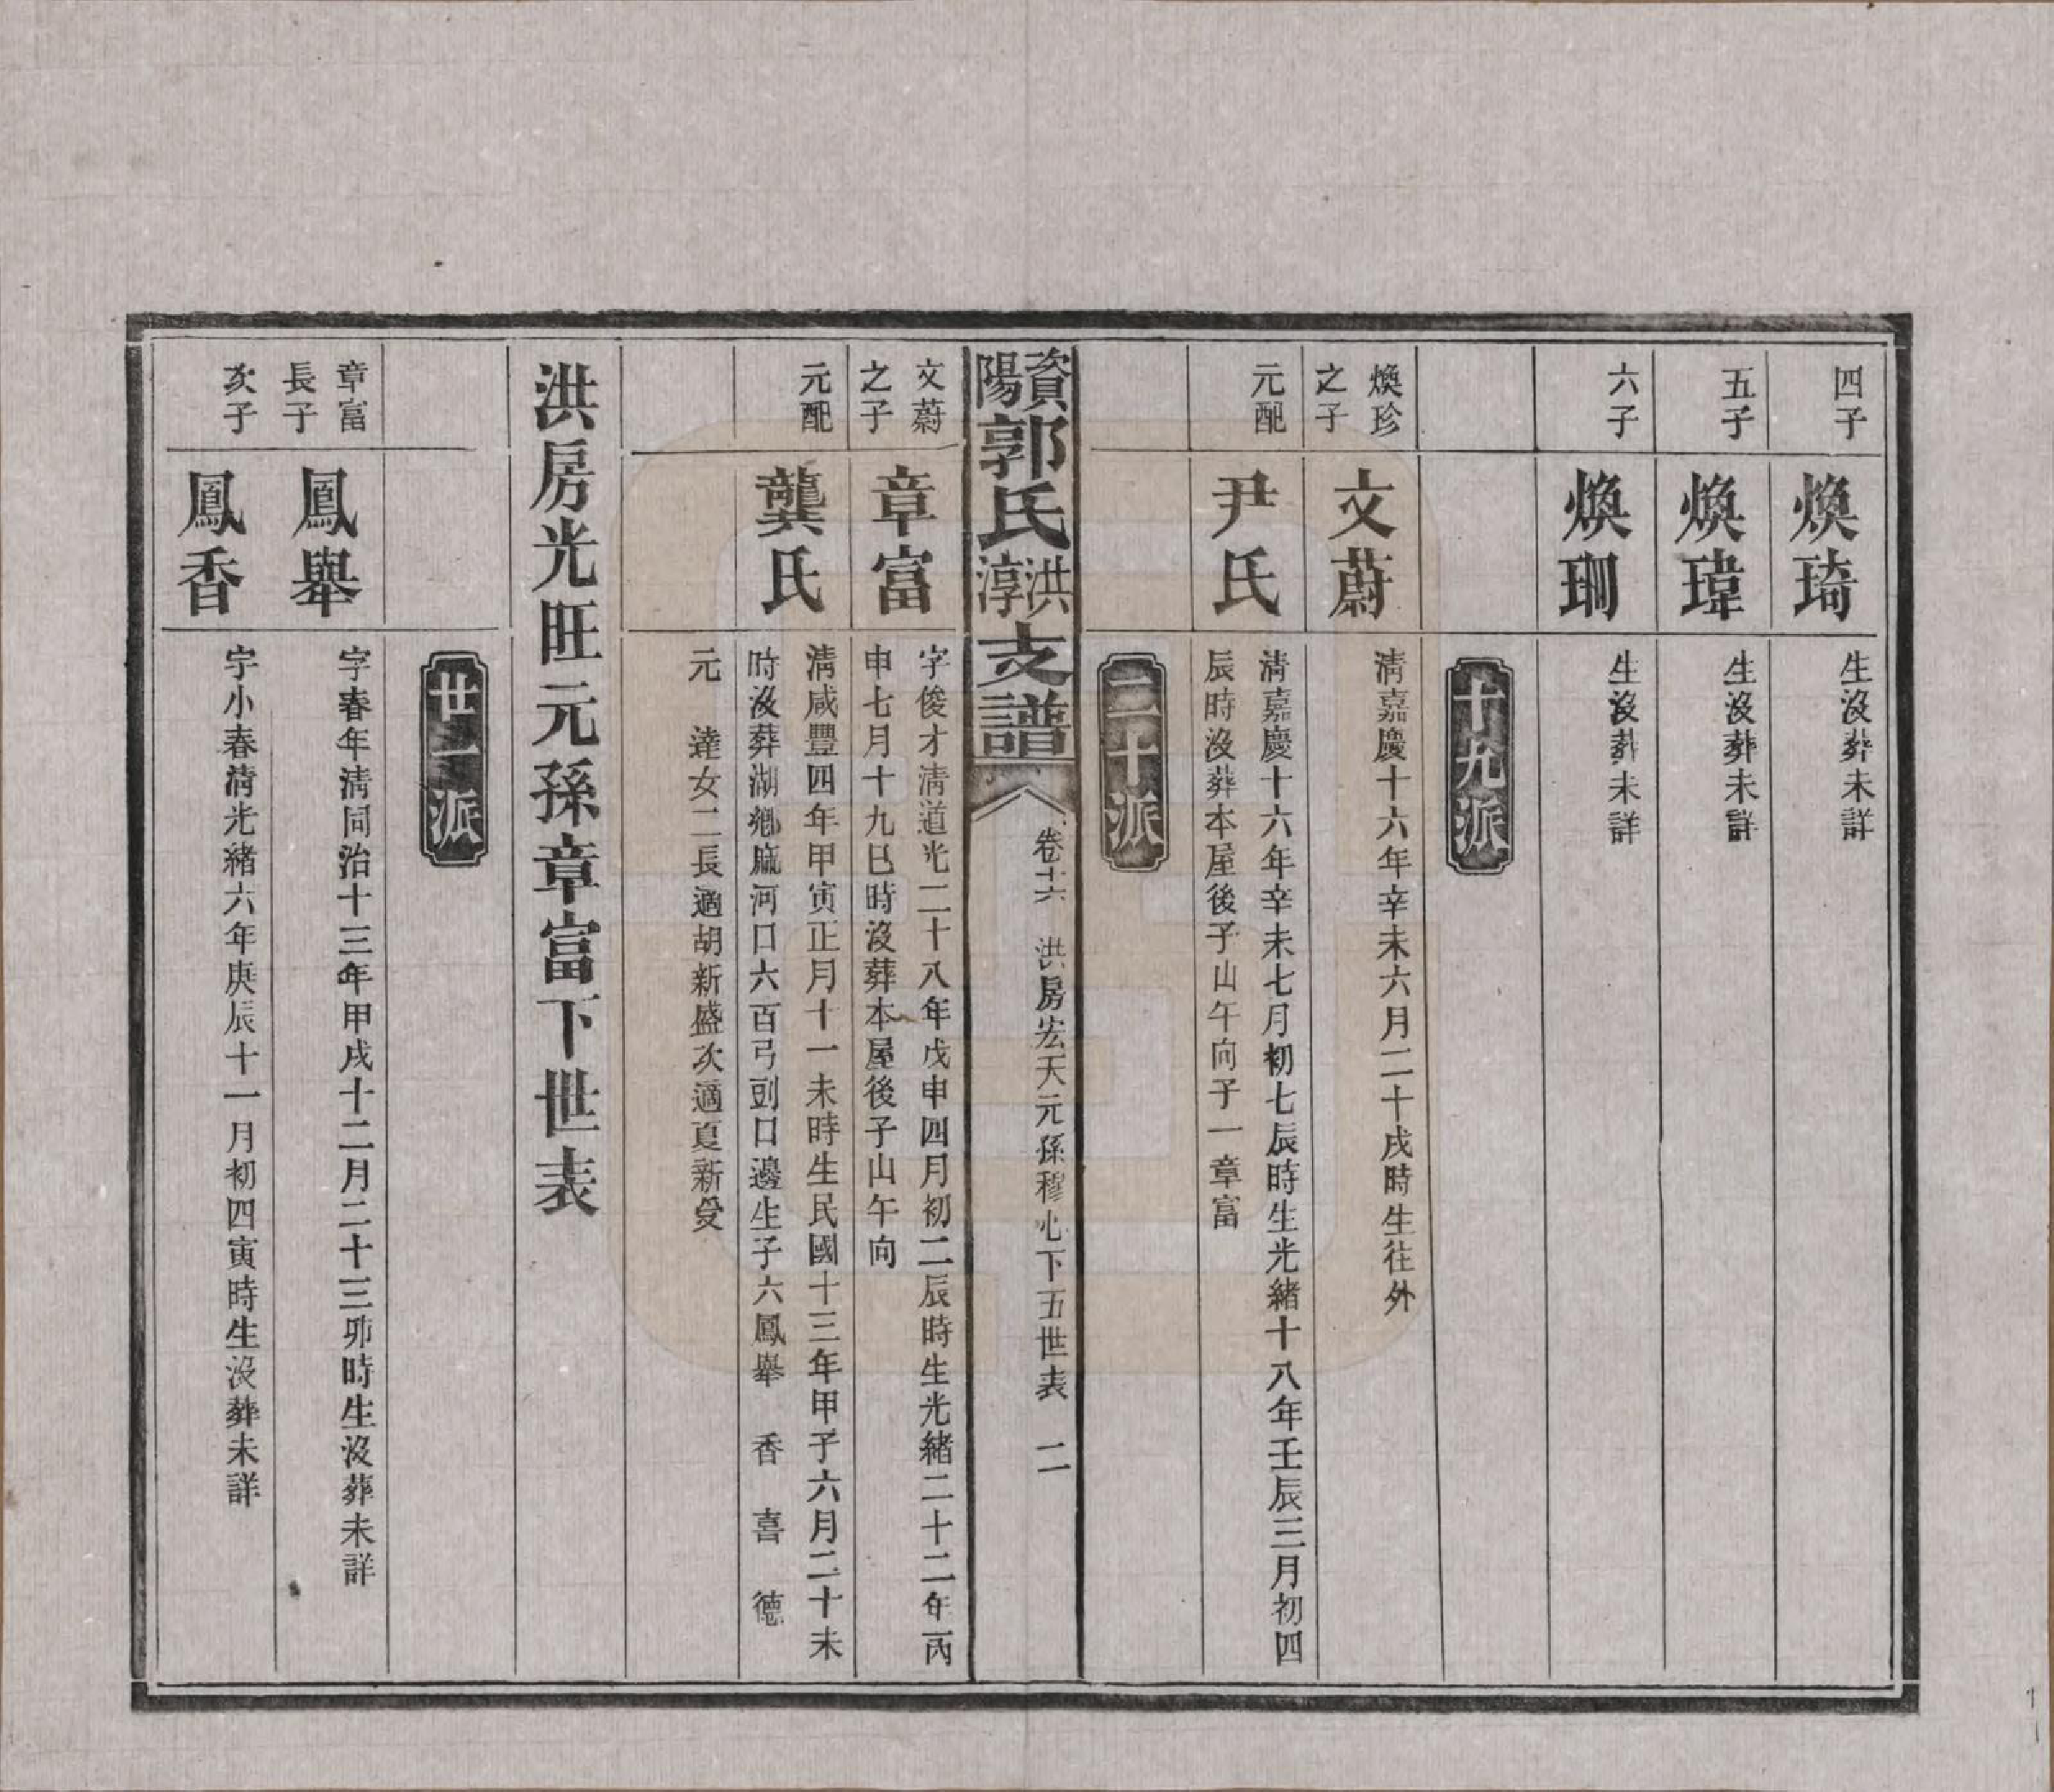 四子
煥琦
生沒葬未詳
五子
煥瑋
生沒葬未詳
六子
煥珊
生沒葬未詳
十九派
煥珍
之子
文蔚
清嘉慶十六年辛未六月二十戌時生往外
元配
尹氏
清嘉慶十六年辛未七月初七辰時生光緒十八年壬辰三月初四
辰時沒葬本屋後子山午向子一章富
二十派
資陽郭氏洪淳支譜
卷十六 洪房宏天元孫穆心下五世表 二
文蔚
之子
章富
字俊才淸道光二十八年戊申四月初二辰時生光緒二十二年丙
申七月十九巳時沒葬本屋後子山午向
元配
龔氏
淸咸豐四年甲寅正月十一未時生民國十三年甲子六月二十未
時沒葬湖鄉蔴河口六百弓剅口邊生子六鳳舉 香 喜 德
元 達女二長適胡新盛次適夏新受
洪房光旺元孫章富下世表
廿一派
章富
長子
鳳舉
字春年淸同治十三年甲戌十二月二十三卯時生沒葬未詳
次子
鳳香
字小春淸光緒六年庚辰十一月初四寅時生沒葬未詳